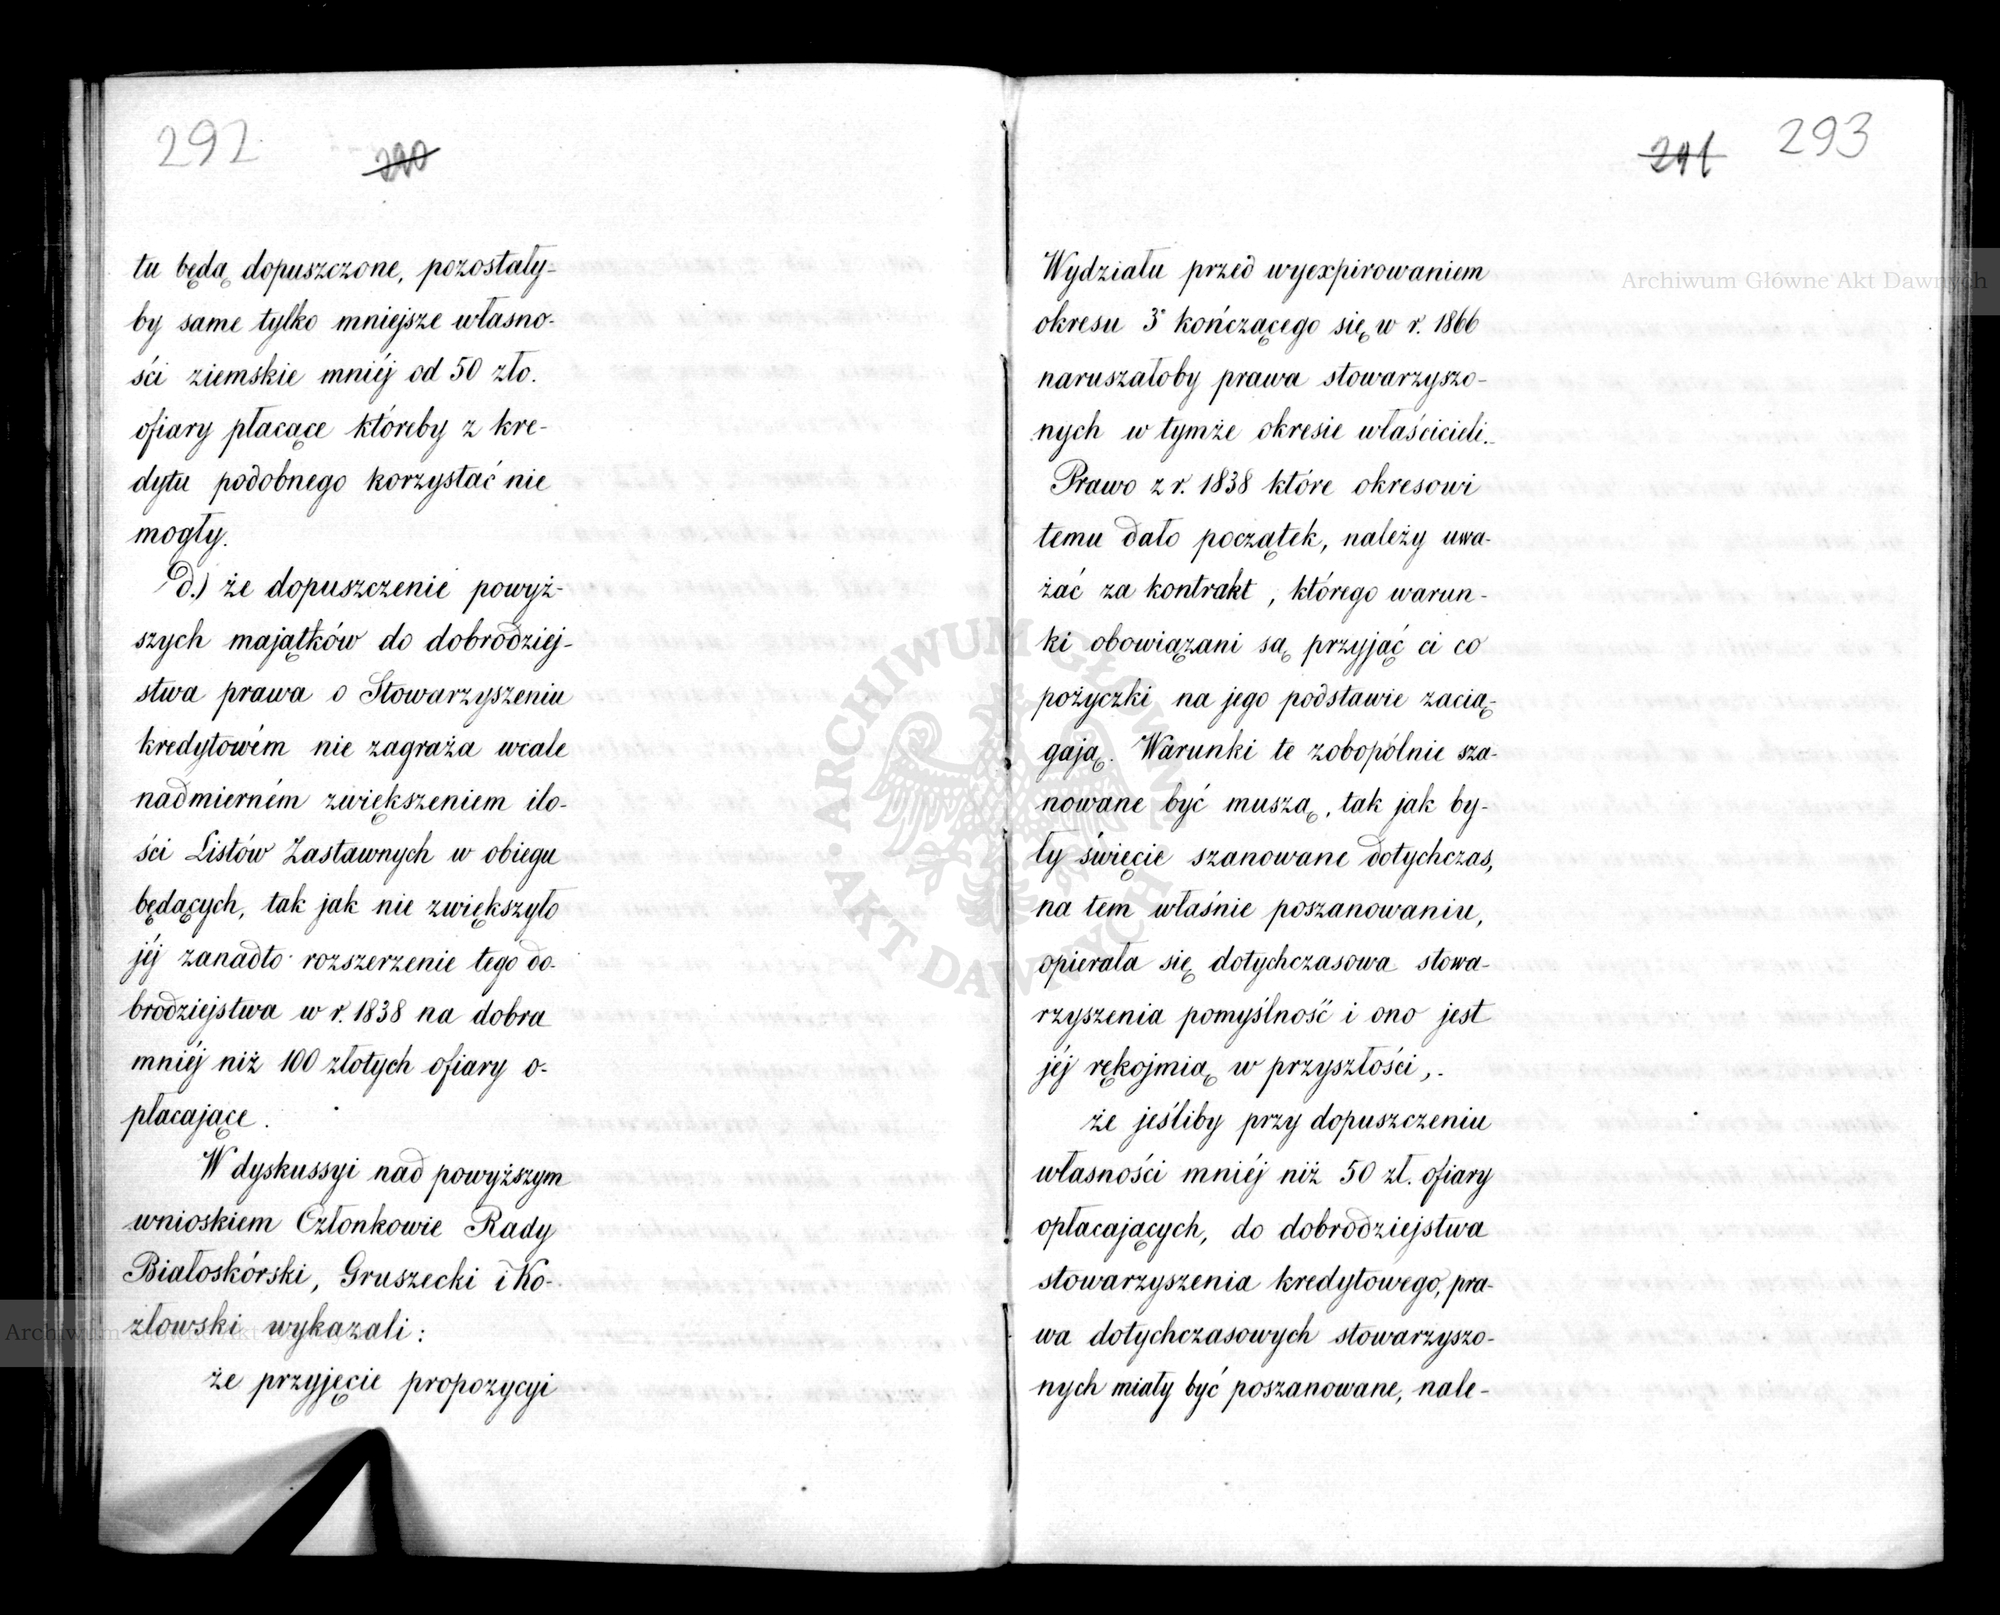 292
290
tu będą dopuszczone, pozostały-
by same tylko mniejsze własno-
ści ziemskie mniéj od 50 zło.
ofiary płacące któreby z kre-
dytu podobnego korzystać nie
mogły.
D.) że dopuszczenie powyż-
szych majątków do dobrodziej-
stwa prawa o Stowarzyszeniu
kredytowém nie zagraża wcale
nadmierném zwiększeniem ilo-
ści Listów Zastawnych w obiegu
będących, tak jak nie zwiększyło
jéj zanadto rozszerzenie tego do-
brodziejstwa w r. 1838 na dobra
mniéj niż 100 złotych ofiary o-
płacające.
W dyskussyi nad powyższym
wnioskiem Członkowie Rady
Białoskórski, Gruszecki i Ko-
złowski wykazali:
że przyjęcie propozycyi
291
293
Wydziału przed wyexpirowaniem
okresu 3° kończącego się w r. 1866
naruszałoby prawa stowarzyszo-
nych w tymże okresie właścicieli.
Prawo z r. 1838 które okresowi
temu dało początek, należy uwa-
żać za kontrakt, którego warun-
ki obowiązani są przyjąć ci co
pożyczki na jego podstawie zacią-
gają. Warunki te zobopólnie sza-
nowane być muszą, tak jak by-
ły święcie szanowane dotychczas,
na tem właśnie poszanowaniu,
opierała się dotychczasowa stowa-
rzyszenia pomyślność i ono jest
jéj rękojmią w przyszłości,.
że jeśliby przy dopuszczeniu
własności mniéj niż 50 zł. ofiary
opłacających, do dobrodziejstwa
stowarzyszenia kredytowego, pra-
wa dotychczasowych stowarzyszo-
nych miały być poszanowane, nale-
Archiwum Główne Akt Dawnych
ARCHIWUM GŁÓWNE • AKT DAWNYCH •